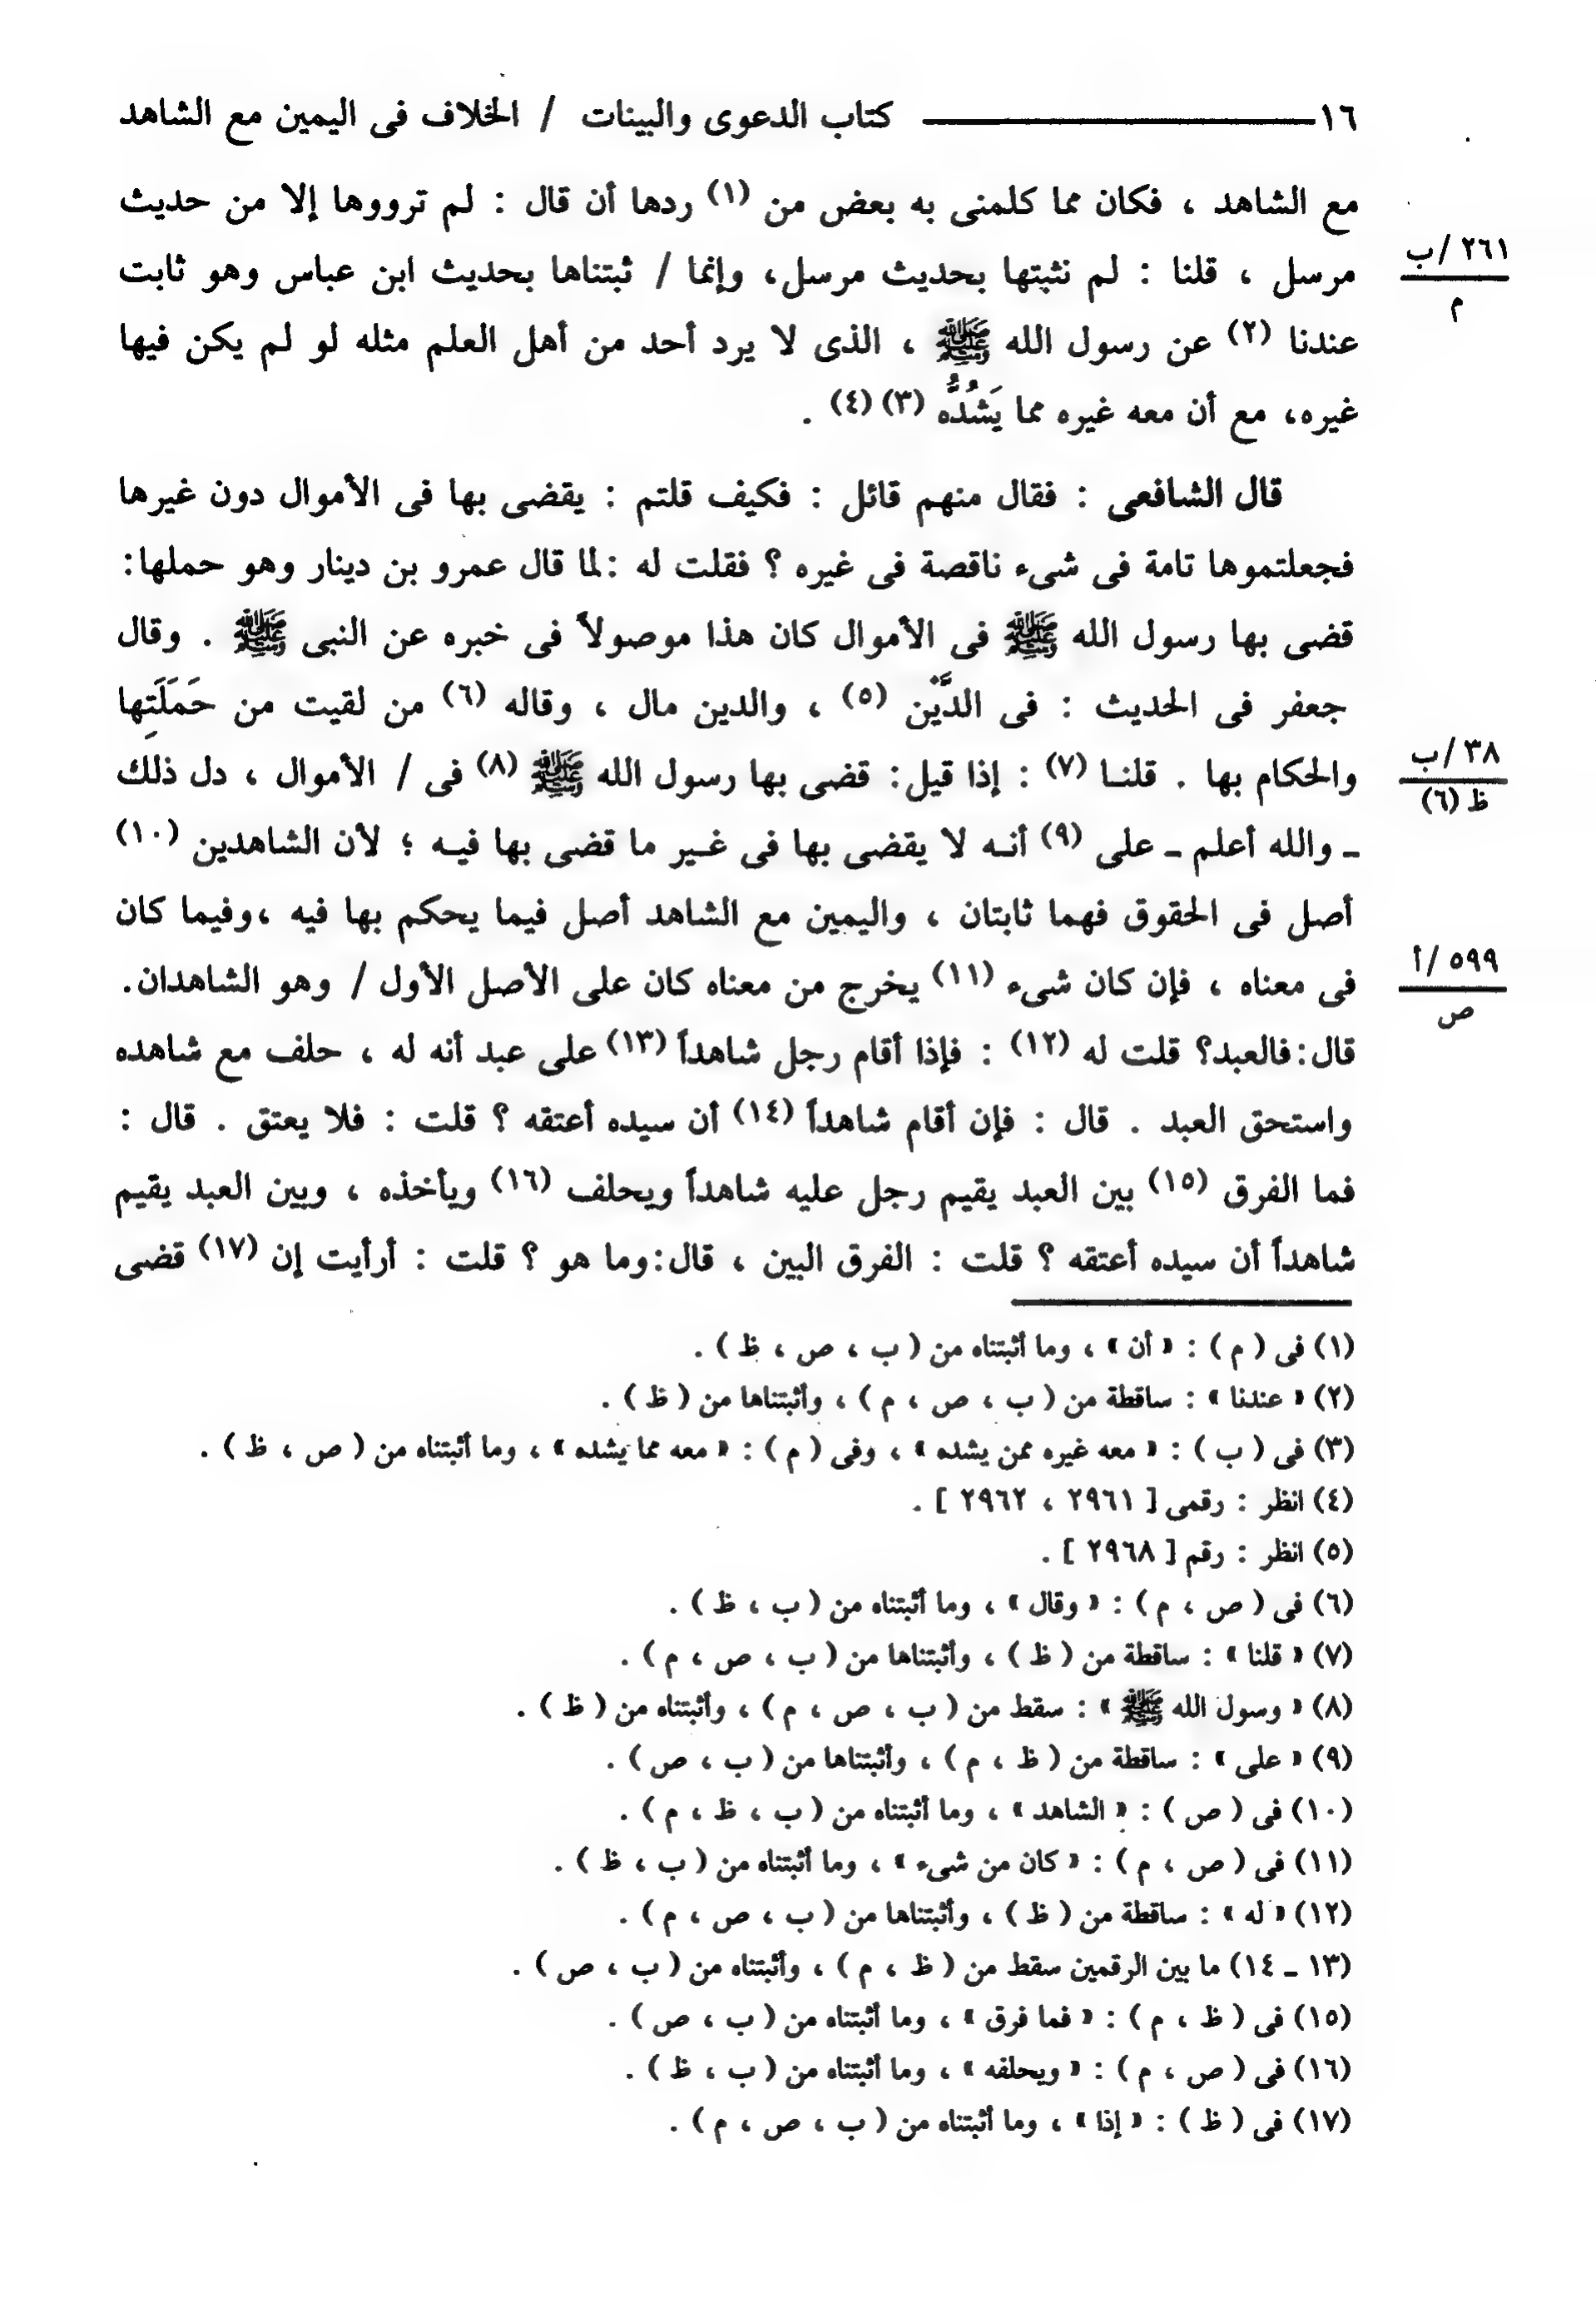 ١٦ كتاب الدعوى والبينات / الخلاف فى اليمين مع الشاهد
مع الشاهد ، فكان مما كلمنى به بعض من (١) ردها أن قال : لم ترووها إلا من حديث
مرسل ، قلنا : لم نثبتها بحديث مرسل، وإنما / ثبتناها بحديث ابن عباس وهو ثابت
٢٦١/ب
م
عندنا (٢) عن رسول الله ﷺ ، الذى لا يرد أحد من أهل العلم مثله لو لم يكن فيها
غيره، مع أن معه غيره مما يَشُدُّه (٣) (٤) .
قال الشافعى : فقال منهم قائل : فكيف قلتم : يقضى بها فى الأموال دون غيرها
فجعلتموها تامة فى شىء ناقصة فى غيره ؟ فقلت له :لما قال عمرو بن دينار وهو حملها:
قضى بها رسول الله ﷺ فى الأموال كان هذا موصولاً فى خبره عن النبى ﷺ . وقال
جعفر فى الحديث : فى الدَّيْن (٥) ، والدين مال ، وقاله (٦) من لقيت من حَمَلَتِها
والحكام بها . قلنـا (٧) : إذا قيل: قضى بها رسول الله ﷺ (٨) فى / الأموال ، دل ذلك
٣٨/ب
ظ (٦)
ـ والله أعلم ـ على (٩) أنـه لا يقضى بها فى غـير ما قضى بها فيـه ؛ لأن الشاهدين (١٠)
أصل فى الحقوق فهما ثابتان ، واليمين مع الشاهد أصل فيما يحكم بها فيه ،وفيما كان
فى معناه ، فإن كان شىء (١١) يخرج من معناه كان على الأصل الأول / وهو الشاهدان.
٥٩٩/أ
ص
قال:فالعبد؟ قلت له (١٢) : فإذا أقام رجل شاهداً (١٣) على عبد أنه له ، حلف مع شاهده
واستحق العبد . قال : فإن أقام شاهداً (١٤) أن سيده أعتقه ؟ قلت : فلا يعتق . قال :
فما الفرق (١٥) بين العبد يقيم رجل عليه شاهداً ويحلف (١٦) ويأخذه ، وبين العبد يقيم
شاهداً أن سيده أعتقه ؟ قلت : الفرق البين ، قال:وما هو ؟ قلت : أرأيت إن (١٧) قضى
(١) فى ( م ) : « أن » ، وما أثبتناه من ( ب ، ص ، ظ ) .
(٢) « عندنا » : ساقطة من ( ب ، ص ، م ) ، وأثبتناها من ( ظ ) .
(٣) فى ( ب ) : « معه غيره ممن يشده » ، وفى ( م ) : « معه مما يشده » ، وما أثبتناه من ( ص ، ظ ) .
(٤) انظر : رقمى [ ٢٩٦١ ، ٢٩٦٢ ] .
(٥) انظر : رقم [ ٢٩٦٨ ] .
(٦) فى ( ص ، م ) : « وقال » ، وما أثبتناه من ( ب ، ظ ) .
(٧) « قلنا » : ساقطة من ( ظ ) ، وأثبتناها من ( ب ، ص ، م ) .
(٨) « وسول الله ﷺ » : سقط من ( ب ، ص ، م ) ، وأثبتناه من ( ظ ) .
(٩) « على » : ساقطة من ( ظ ، م ) ، وأثبتناها من ( ب ، ص ) .
(١٠) فى ( ص ) : « الشاهد » ، وما أثبتناه من ( ب ، ظ ، م ) .
(١١) فى ( ص ، م ) : « كان من شىء » ، وما أثبتناه من ( ب ، ظ ) .
(١٢) « له » : ساقطة من ( ظ ) ، وأثبتناها من ( ب ، ص ، م ) .
(١٣ ـ ١٤) ما بين الرقمين سقط من ( ظ ، م ) ، وأثبتناه من ( ب ، ص ) .
(١٥) فى ( ظ ، م ) : « فما فرق » ، وما أثبتناه من ( ب ، ص ) .
(١٦) فى ( ص ، م ) : « ويحلفه » ، وما أثبتناه من ( ب ، ظ ) .
(١٧) فى ( ظ ) : « إذا » ، وما أثبتناه من ( ب ، ص ، م ) .